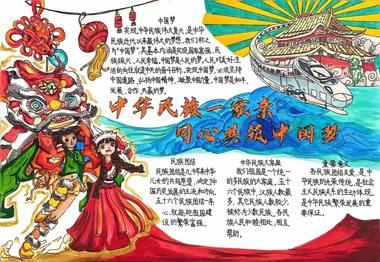 中国梦
实现中华民族伟大复兴,是中华
民族近代以来最伟大的梦想,我们称之
为"中国梦",其基本内涵是实现国家富强、
民族振兴、人民幸福。中国梦是人民的梦,人民对美好生
活的向往就是中共的奋斗目标,实现中国梦,必须坚持
中国道路、弘扬中国精神、凝聚中国力量,中国梦是和平、
发展、合作、共赢的梦。
中华民族一家亲
同心共筑中国梦
民族团结
民族团结是几千年来中华
儿女的共同愿望,决定了中
国的民族发展的走向和方向,
五十六个民族团结一条
心,就能把祖国建
设的繁荣富强。
中华民族大家庭
我们祖国是一个统一
的多民族的大家庭,五十
六个民族中,汉族人数最
多,其它民族人数较少,
被称为少数民族,各民
族人民和睦相处,相互
帮助。
重要意义
各民族团结友爱,是中
华民族的优秀传统,是社会
主义民族关系的生动体现,
是中华民族繁荣发展的重
要保证。